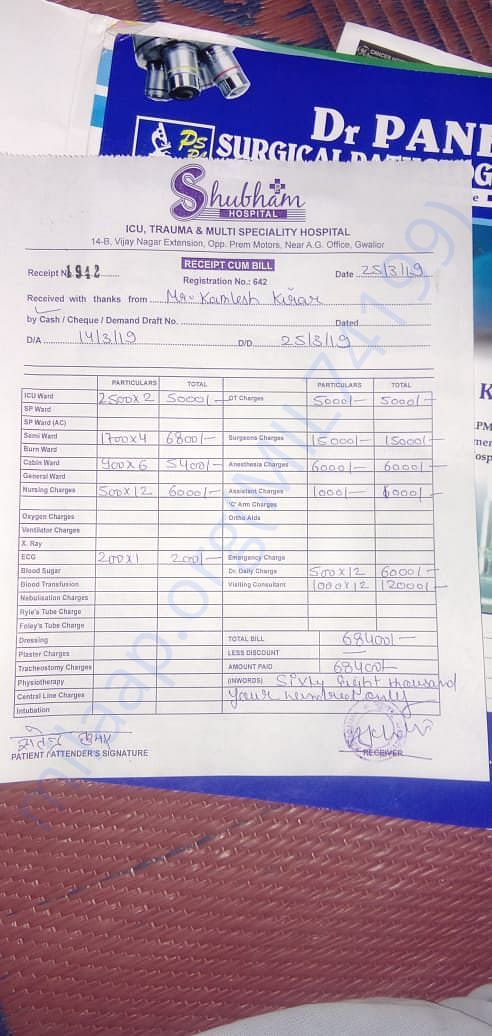 CANCER
Dr PAN
PS
SURGICAL PATHOLOG
Shubham
HOSPITAL
ICU, TRAUMA & MULTI SPECIALITY HOSPITAL
14-B, Vijay Nagar Extension, Opp. Prem Motors, Near A.G. Office, Gwalior
RECEIPT CUM BILL
Receipt No. 1942 Registration No.: 642 Date 25/3/19
Received with thanks from Mr. Kamlesh Kirar
by Cash / Cheque / Demand Draft No. Dated
D/A 14/3/19 D/D 25/3/19
PARTICULARS TOTAL PARTICULARS TOTAL
ICU Ward 2500x2 5000/- OT Charges 5000/- 5000/-
SP Ward
SP Ward (AC)
Semi Ward 1700x4 6800/- Surgeons Charges 15000/- 15000/-
Burn Ward
Cabin Ward 900x6 5400/- Anesthesia Charges 6000/- 6000/-
General Ward
Nursing Charges 500x12 6000/- Assistant Charges 1000/- 1000/-
'C' Arm Charges
Oxygen Charges Ortho Aids
Ventilator Charges
X. Ray
ECG 200x1 200/- Emergency Charge
Blood Sugar Dr. Daily Charge 500x12 6000/-
Blood Transfusion Visiting Consultant 1000x12 12000/-
Nebulisation Charges
Ryle's Tube Charge
Foley's Tube Charge
Dressing TOTAL BILL 68400/-
Plaster Charges LESS DISCOUNT —
Tracheostomy Charges AMOUNT PAID 68400/-
Physiotherapy (INWORDS) Sixty Eight thousand
Central Line Charges four hundred only
Intubation
PATIENT / ATTENDER'S SIGNATURE RECEIVER
milaap.org(MIL74199)